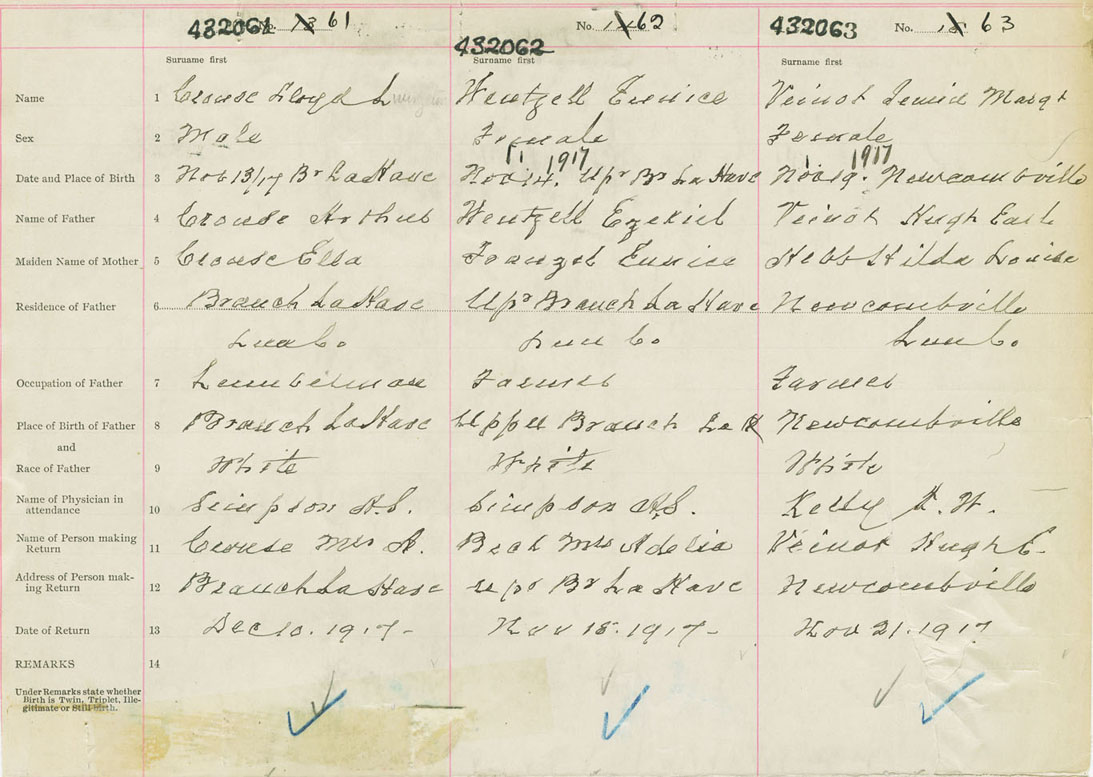 432061 No. 13 61 432062 No. 14 62 432063 No. 15 63
Surname first Surname first Surname first
Name 1 Crouse Lloyd L Wentzell Eunice Veinot Jemid Margt
Sex 2 Male Female Female
11 1917 1917
Date and Place of Birth 3 Nov 13/17 Br LaHave Nov 14. Upr Br La Have Nov 19. Newcombville
Name of Father 4 Crouse Arthur Wentzell Ezekiel Veinot Hugh Earl
Maiden Name of Mother 5 Crouse Ella Eunice Hebb Hilda Louise
Residence of Father 6 Branch LaHave Upr Branch La Have Newcombville
Lun Co. Lun Co Lun Co.
Occupation of Father 7 Lumberman Farmer Farmer
Place of Birth of Father 8 Branch LaHave Upper Branch La H Newcombville
and
Race of Father 9 White White White
Name of Physician in
attendance 10 Simpson H.S. Simpson H.S. Kelly
Name of Person making
Return 11 Crouse Mrs A. Beck Mrs Adelia Veinot Hugh E.
Address of Person mak-
ing Return 12 Branch La Have Upr Br La Have Newcombville
Date of Return 13 Dec 10. 1917- Nov 18. 1917- Nov 21. 1917
REMARKS 14
Under Remarks state whether
Birth is Twin, Triplet, Ille-
gitimate or Still birth.